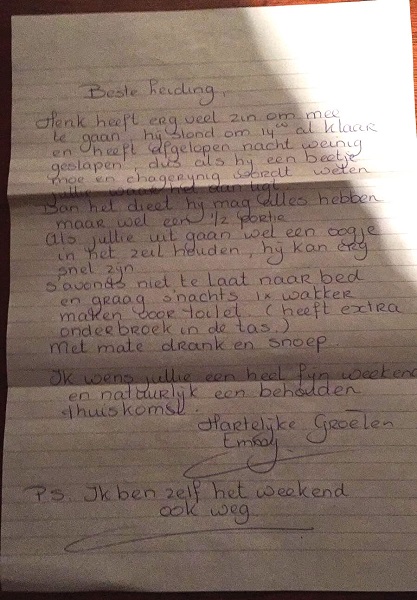 Beste Leiding,
Henk heeft erg veel zin om mee
te gaan, hij stond om 14 uur al klaar
en heeft afgelopen nacht weinig
geslapen, dus als hij een beetje
moe en chagerynig wordt weten
jullie waar het aan ligt.
Dan het dieet hij mag alles hebben
maar wel een 1/2 portie
Als jullie uit gaan wel een oogje
in het zeil houden, hij kan erg
snel zijn
s'avonds niet te laat naar bed
en graag s'nachts 1x wakker
maken voor toilet. (heeft extra
onderbroek in de tas.)
Met mate drank en snoep.
Ik wens jullie een heel fyn weekend
en natuurlyk een behouden
thuiskomst.
Hartelijke Groeten
P.S. Ik ben zelf het weekend
ook weg